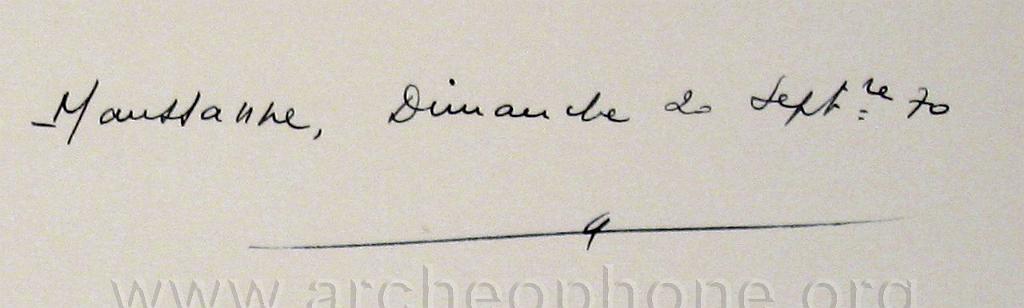 Maussanne, Dimanche 20 Septre 70
www.archeophone.org